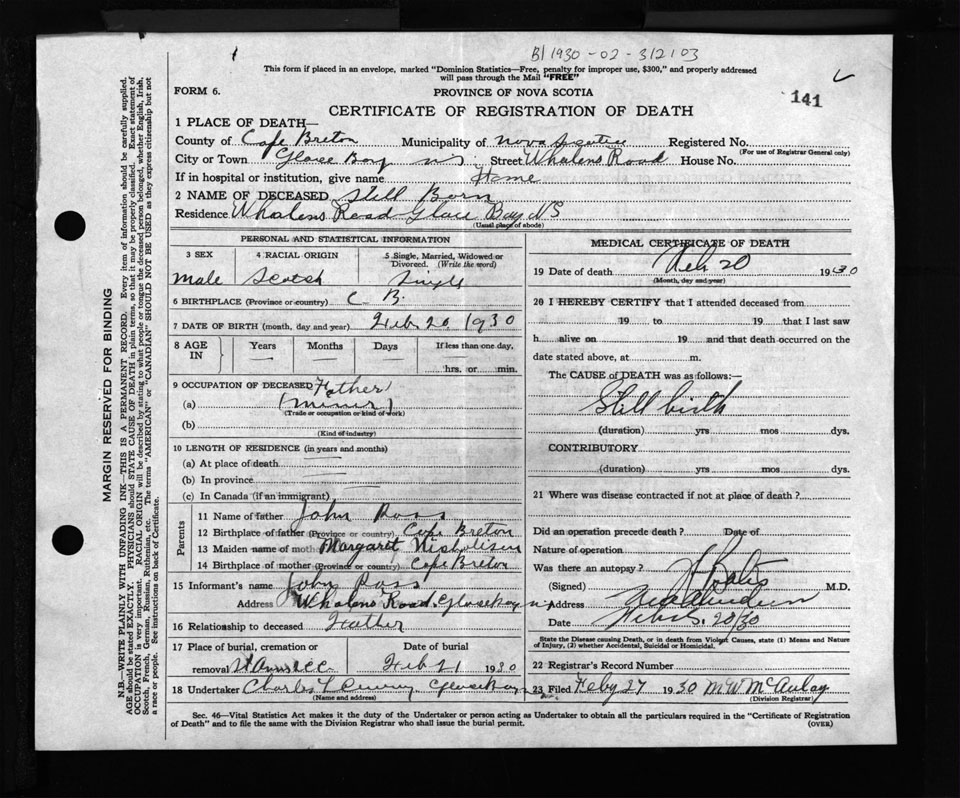 B1930-02-312103
This form if placed in an envelope, marked "Dominion Statistics—Free, penalty for improper use, $300," and properly addressed
will pass through the Mail "FREE"
FORM 6.
PROVINCE OF NOVA SCOTIA
141
CERTIFICATE OF REGISTRATION OF DEATH
1 PLACE OF DEATH—
County of Cape Breton Municipality of Nova Scotia Registered No.
(For use of Registrar General only)
City or Town Glace Bay NS Street Whalens Road House No.
If in hospital or institution, give name Home
2 NAME OF DECEASED Still Born
Residence Whalens Road Glace Bay NS
(Usual place of abode)
PERSONAL AND STATISTICAL INFORMATION
3 SEX 4 RACIAL ORIGIN 5 Single, Married, Widowed or Divorced. (Write the word)
male Scotch Single
6 BIRTHPLACE (Province or country) C. B.
7 DATE OF BIRTH (month, day and year) Feb 20 1930
8 AGE IN Years Months Days If less than one day,
hrs. or min.
9 OCCUPATION OF DECEASED Father
(a) (miner)
(Trade or occupation or kind of work)
(b)
(Kind of industry)
10 LENGTH OF RESIDENCE (in years and months)
(a) At place of death
(b) In province
(c) In Canada (if an immigrant)
Parents
11 Name of father John Ross
12 Birthplace of father (Province or country) Cape Breton
13 Maiden name of mother Margaret Nicholson
14 Birthplace of mother (Province or country) Cape Breton
15 Informant's name John Ross
Address Whalens Road. Glace Bay
16 Relationship to deceased Father
17 Place of burial, cremation or Date of burial
removal Feb 21 1930
18 Undertaker Charles Glace Bay
(Name and address)
MEDICAL CERTIFICATE OF DEATH
19 Date of death Feb 20 1930
(Month, day and year)
20 I HEREBY CERTIFY that I attended deceased from
19 to 19 that I last saw
h alive on 19 and that death occurred on the
date stated above, at m.
The CAUSE of DEATH was as follows:—
Still birth
(duration) yrs mos dys.
CONTRIBUTORY
(duration) yrs mos dys.
21 Where was disease contracted if not at place of death?
Did an operation precede death? Date of
Nature of operation
Was there an autopsy?
(Signed) M.D.
Address
Date Feb. 20/30
State the Disease causing Death, or in death from Violent Causes, state (1) Means and Nature
of Injury, (2) whether Accidental, Suicidal or Homicidal.
22 Registrar's Record Number
23 Filed Feby 27 1930 M W McAulay
(Division Registrar)
Sec. 46—Vital Statistics Act makes it the duty of the Undertaker or person acting as Undertaker to obtain all the particulars required in the "Certificate of Registration
of Death" and to file the same with the Division Registrar who shall issue the burial permit.
(OVER)
MARGIN RESERVED FOR BINDING
N.B.—WRITE PLAINLY WITH UNFADING INK—THIS IS A PERMANENT RECORD. Every item of information should be carefully supplied.
AGE should be stated EXACTLY. PHYSICIANS should STATE CAUSE OF DEATH in plain terms, so that it may be properly classified. Exact statement of
OCCUPATION is very important. RACIAL ORIGIN will be described by stating to what people or tongue the deceased person belonged, whether English, Irish,
Scotch, French, German, Russian, Ruthenian, etc. The terms "AMERICAN" or "CANADIAN" SHOULD NOT BE USED as they express citizenship but not
a race or people. See instructions on back of Certificate.